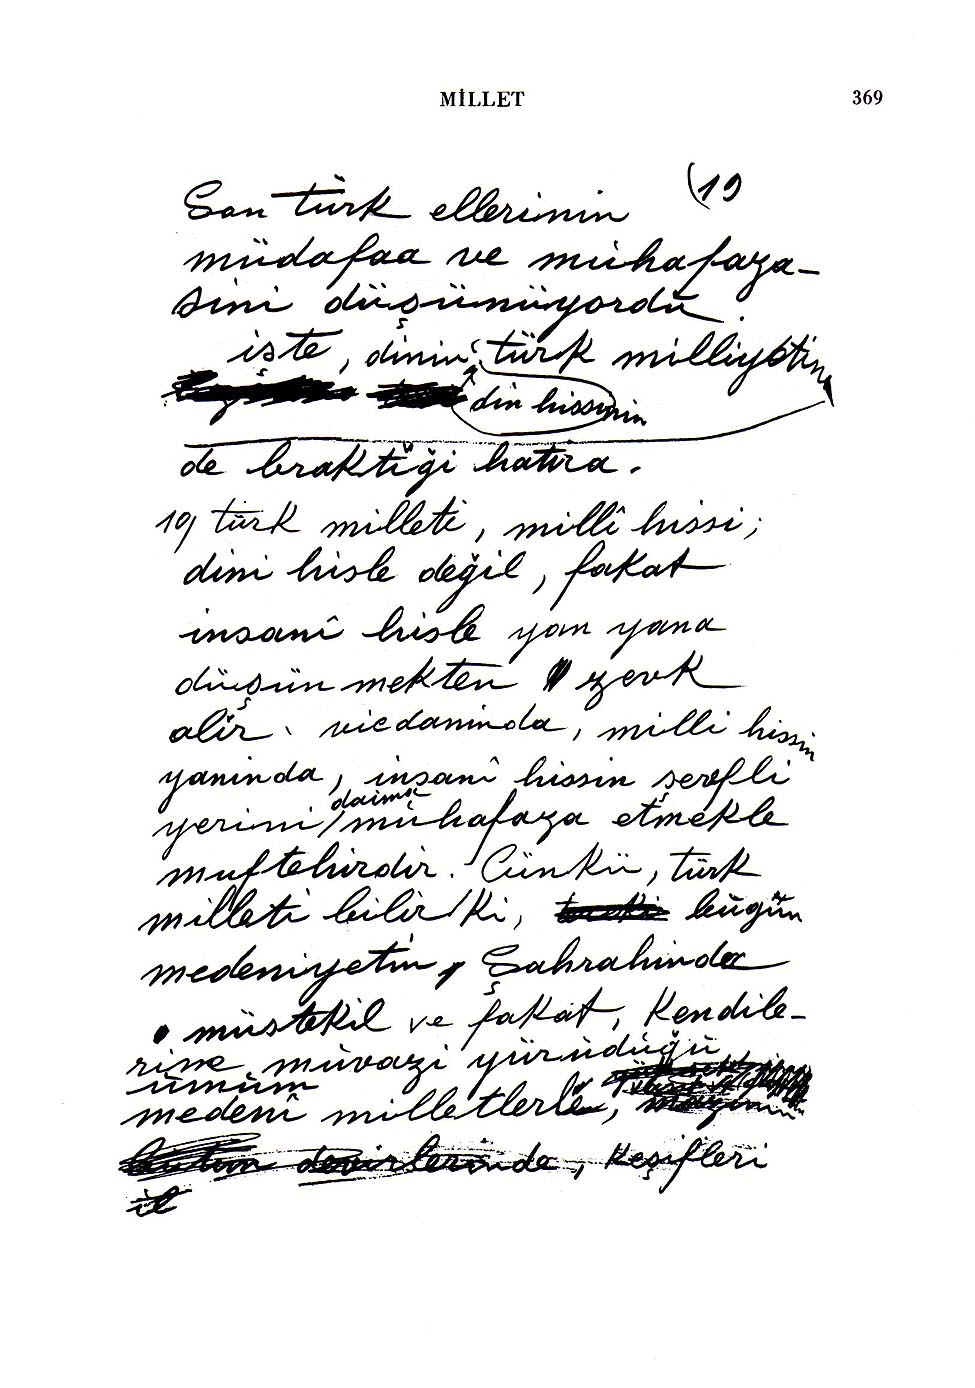 MİLLET 369
(19
Son türk ellerinin
müdafaa ve muhafaza-
sini düşünüyordu.
işte, dinin, türk milliyetin
din hissinin
de braktiği hatıra.
19) türk milleti, millî hissi;
dini hisle değil, fakat
insanî hisle yan yana
düşünmekten zevk
alır. vicdanında, milli hissin
yanında, insanî hissin şerefli
daima
yerini muhafaza etmekle
muftehirdir. Cünkü, türk
milleti bilir ki, bugün
medeniyetin, Şahrahinda
müstekil ve fakat, kendile-
rine müvazi yürüdüğü
ümüm
medenî milletlerle,
devirlerinde, keşifleri